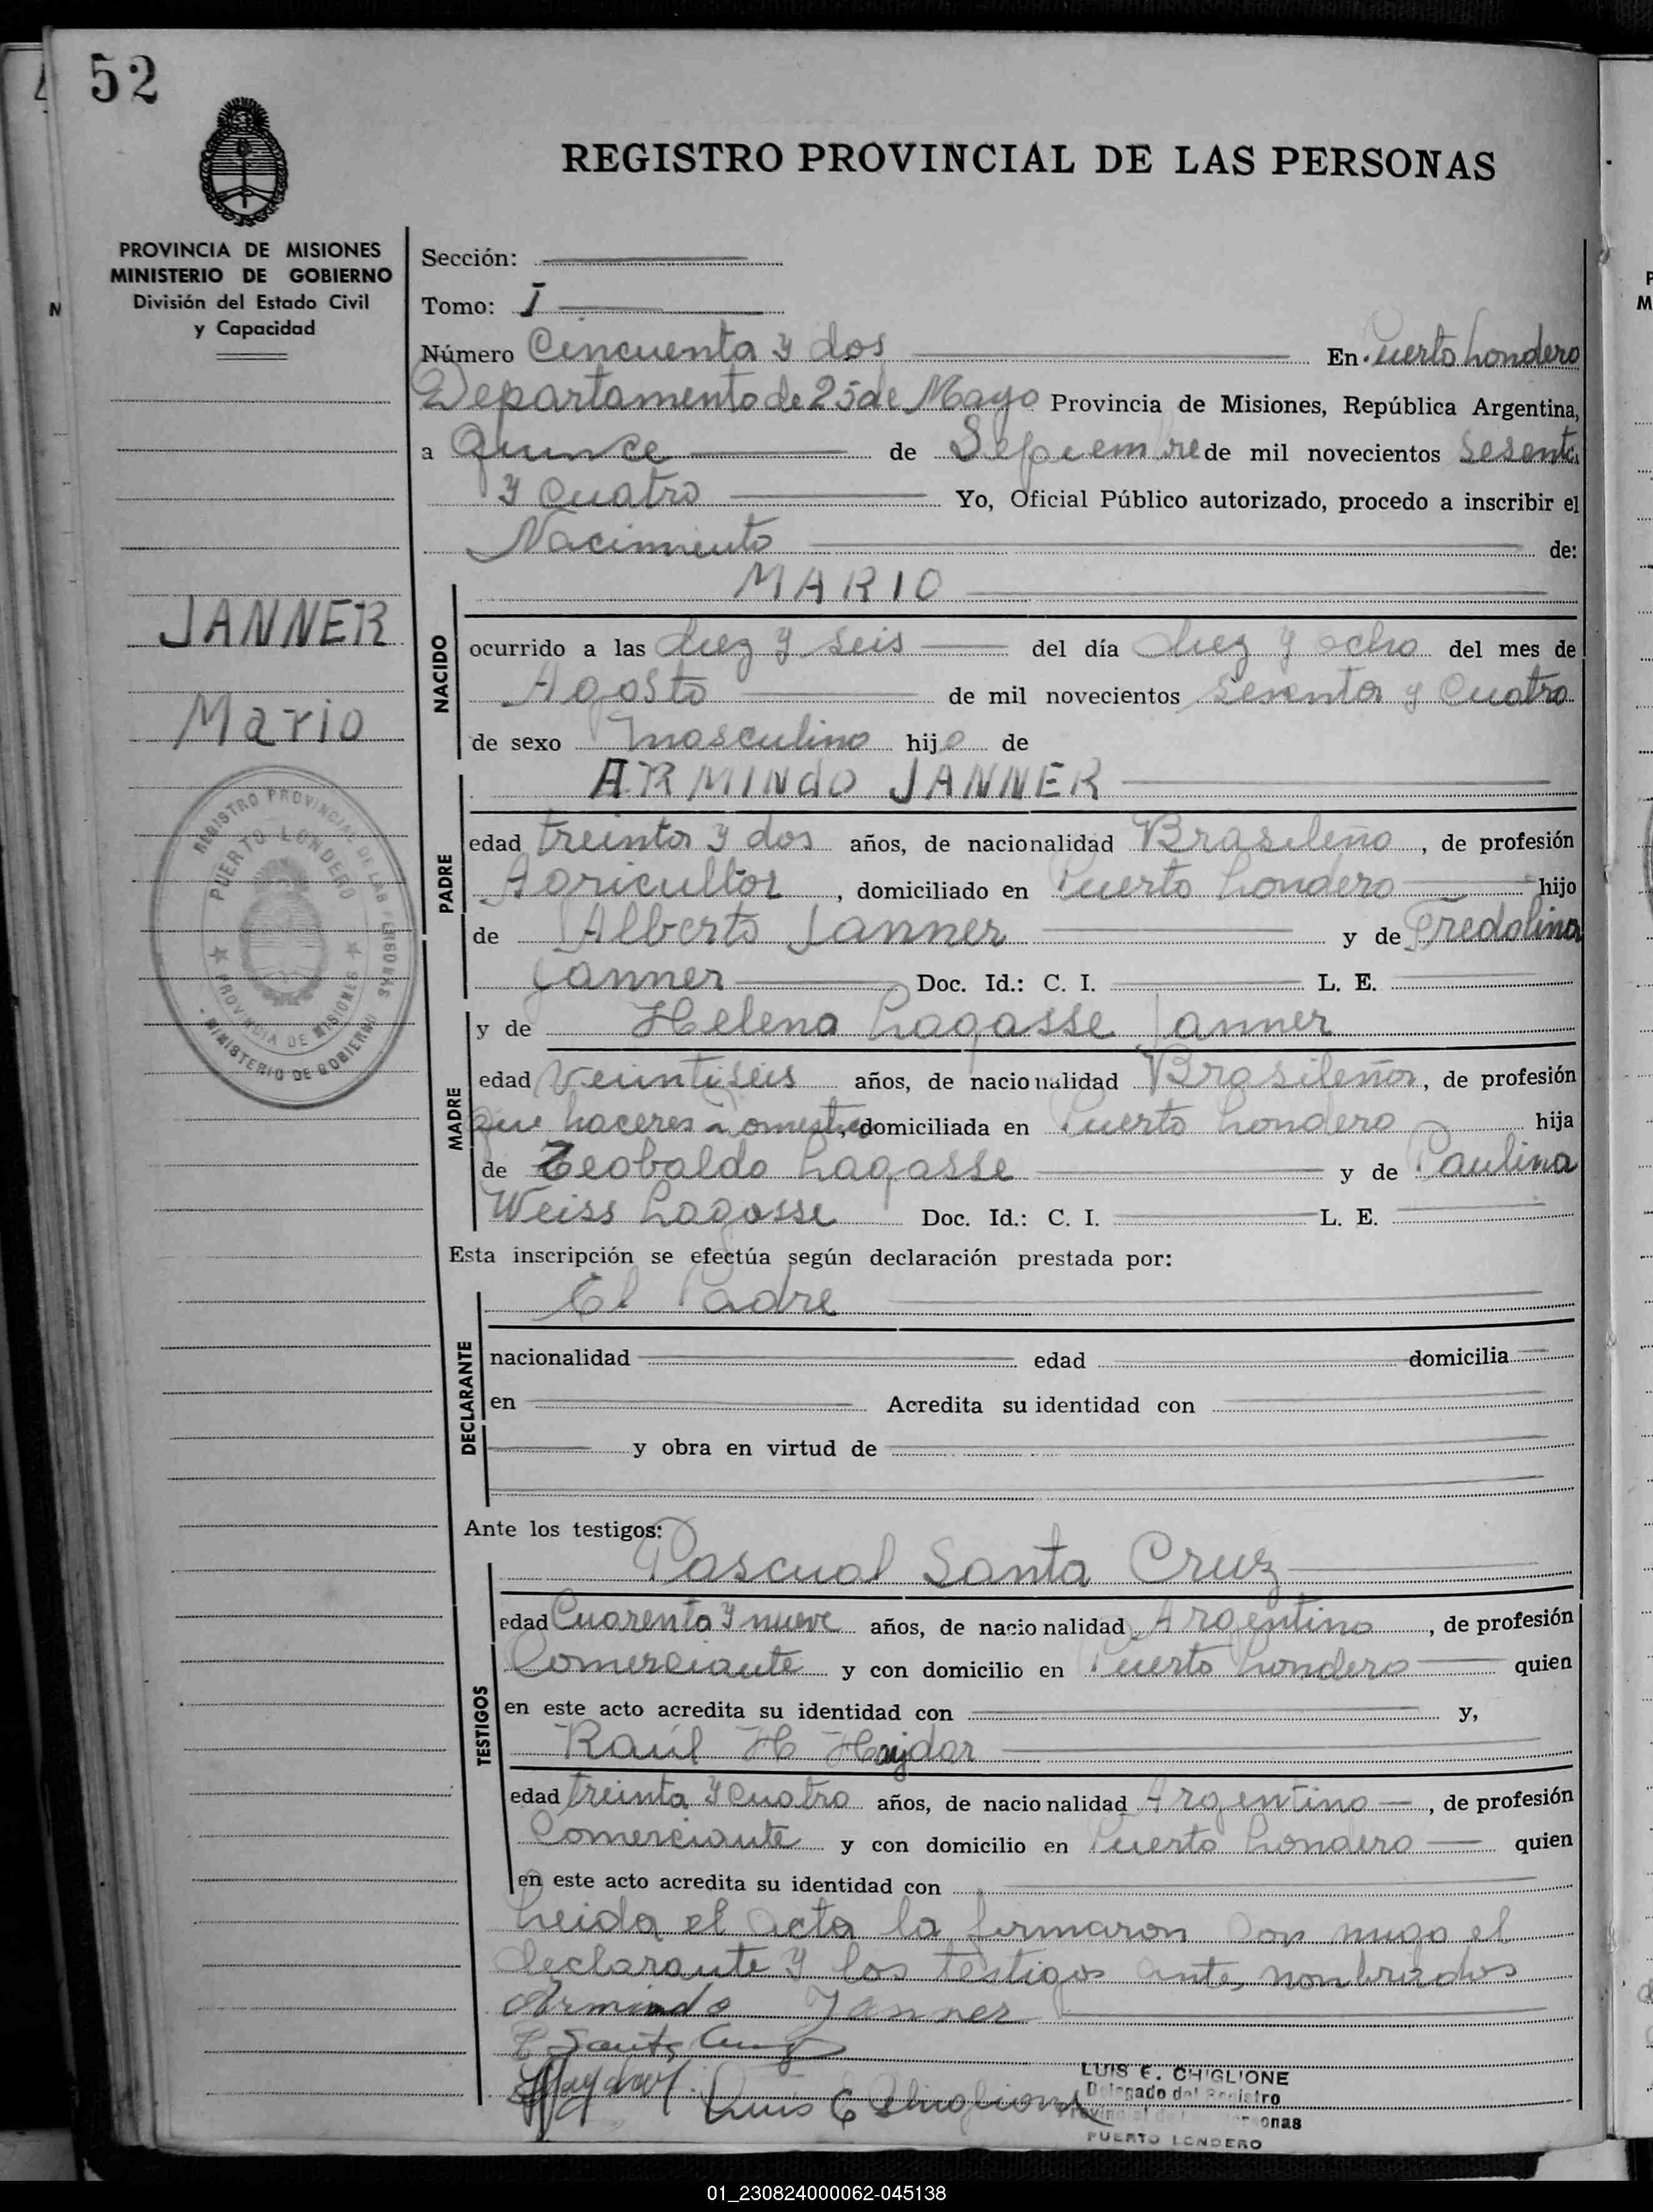 52
REGISTRO PROVINCIAL DE LAS PERSONAS
PROVINCIA DE MISIONES
MINISTERIO DE GOBIERNO
División del Estado Civil
y Capacidad
JANNER
Mario
REGISTRO PROVINCIAL DE LAS PERSONAS
PUERTO LONDERO
PROVINCIA DE MISIONES
MINISTERIO DE GOBIERNO
Sección:
Tomo: I
Número Cincuenta y dos En Puerto Londero
Departamento de 25 de Mayo Provincia de Misiones, República Argentina,
a Quince de Septiembre de mil novecientos Sesenta
y Cuatro Yo, Oficial Público autorizado, procedo a inscribir el
Nacimiento de:
MARIO
NACIDO
ocurrido a las diez y seis del día diez y ocho del mes de
Agosto de mil novecientos sesenta y Cuatro
de sexo masculino hijo de
ARMINDO JANNER
PADRE
edad treinta y dos años, de nacionalidad Brasileño, de profesión
Agricultor, domiciliado en Puerto Londero hijo
de Alberto Janner y de Fredolina
Janner Doc. Id.: C. I. L. E.
y de Helena Lagasse Janner
MADRE
edad Veintiseis años, de nacionalidad Brasileña, de profesión
Que haceres domestico, domiciliada en Puerto Londero hija
de Teobaldo Lagasse y de Paulina
Weiss Lagasse Doc. Id.: C. I. L. E.
Esta inscripción se efectúa según declaración prestada por:
El Padre
DECLARANTE
nacionalidad edad domicilia
en Acredita su identidad con
y obra en virtud de
Ante los testigos:
Pascual Santa Cruz
TESTIGOS
edad Cuarenta y nueve años, de nacionalidad Argentino, de profesión
Comerciante y con domicilio en Puerto Londero quien
en este acto acredita su identidad con y,
Raúl H Haydar
edad treinta y Cuatro años, de nacionalidad Argentino, de profesión
Comerciante y con domicilio en Puerto Londero quien
en este acto acredita su identidad con
Leida el acta la firmaron con migo el
declarante y los testigos ante nombrados
Armindo Janner
P Santa Cruz
Haydar. Luis E Chiglione
LUIS E. CHIGLIONE
Delegado del Registro
Provincial de las Personas
PUERTO LONDERO
01_230824000062-045138